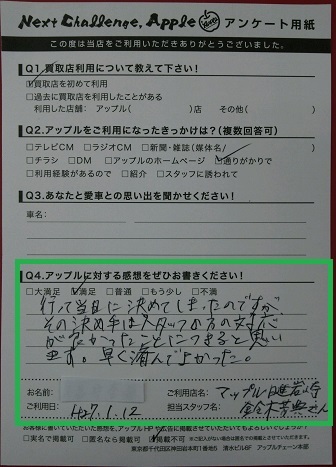 Next Challenge, Apple アンケート用紙
この度は当店をご利用いただきありがとうございました。
Q1.買取店利用について教えて下さい!
☑買取店を初めて利用
□過去に買取店を利用したことがある
利用した店舗:アップル( )店 その他( )
Q2.アップルをご利用になったきっかけは?(複数回答可)
□テレビCM □ラジオCM □新聞・雑誌(媒体名/ )
□チラシ □DM □アップルのホームページ ☑通りがかりで
□利用経験があるので □紹介 □スタッフに誘われて
Q3.あなたと愛車との思い出を聞かせください!
車名:
Q4.アップルに対する感想をぜひお書きください!
□大満足 ☑満足 □普通 □もう少し □不満
行って当日に決めてしまったのですが、
その決め手はスタッフの方の対応
が良かったことにつきると思い
ます。早く済んでよかった。
お名前: ご利用店名:アップル
ご利用日:H27.1.12 担当スタッフ名:
お客様に書いていただいた感想を、アップルHPや広告に掲載させていただいてもよろしいでしょうか?
□実名で掲載可 □匿名なら掲載可 掲載不可
東京都千代田区神田岩本町1番地 清水ビル8F アップルチェーン本部